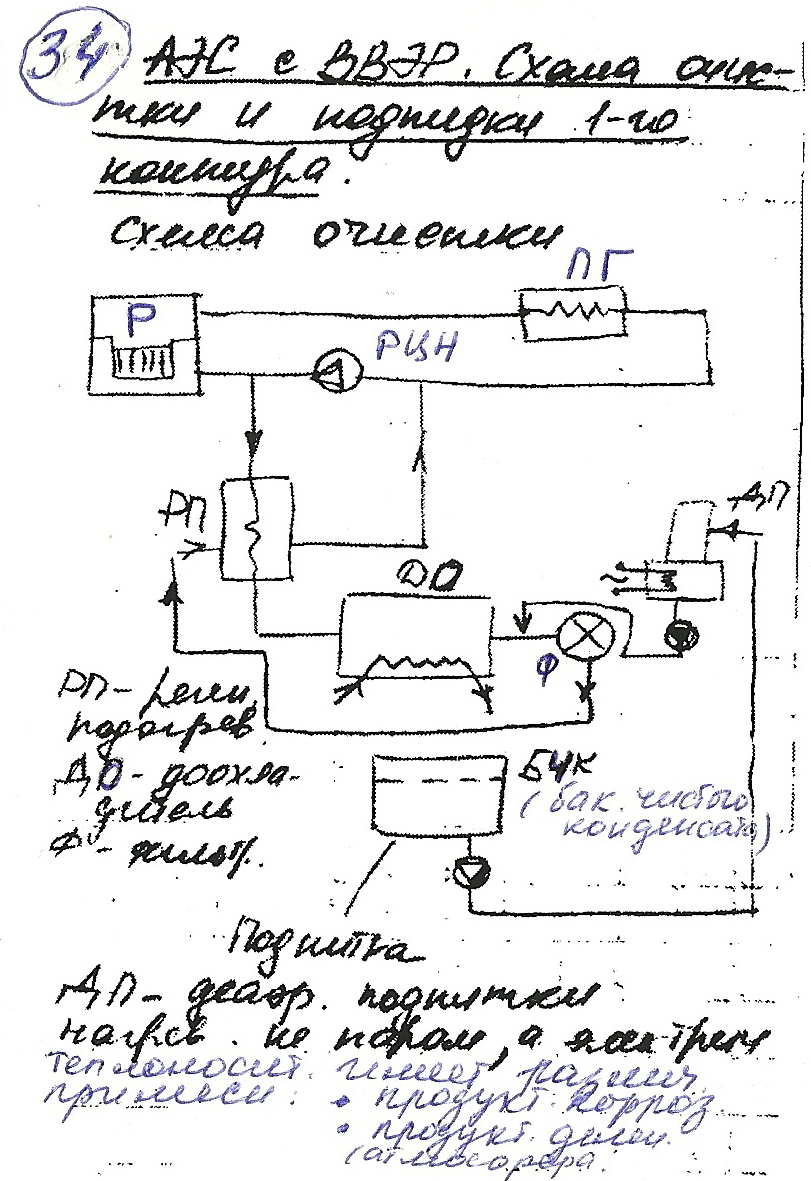 34 АЭС с ВВЭР. Схема очис-
тки и подпидки 1-го
контура.
Схема очистки
ПГ
Р
РЦН
РП
ДП
ДО
~
Ф
РП - реген.
подогрев.
ДО - доохла-
дитель
Ф - фильтр.
БЧК
(бак. чистого
конденсата)
Подпитка
ДП - деаэр. подпитки
нагрев. не паром, а электрич
теплоносит. имеет различ.
примеси: • продукт. корроз.
• продукт. делен.
(атмосфера.